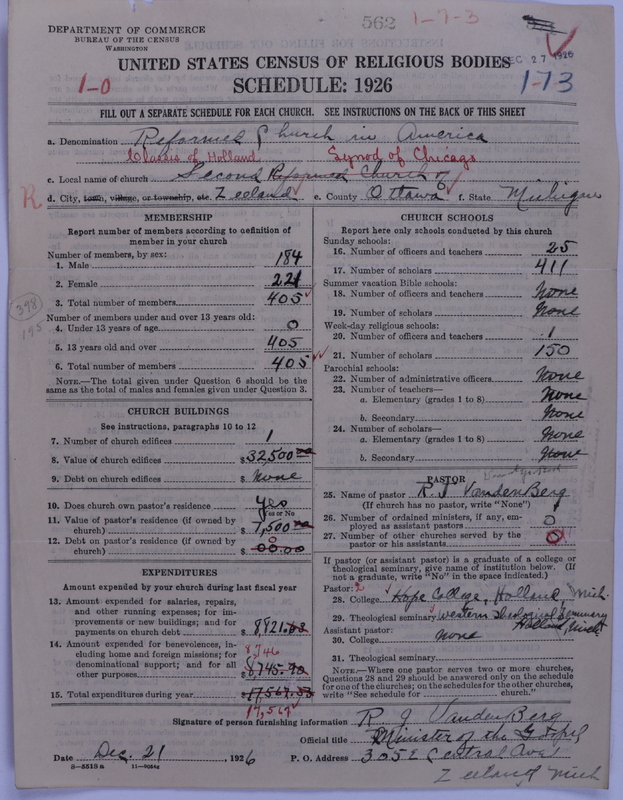 DEPARTMENT OF COMMERCE
BUREAU OF THE CENSUS
WASHINGTON
562 1-7-3
DEC 27 1926
UNITED STATES CENSUS OF RELIGIOUS BODIES
1-0 SCHEDULE: 1926 1-73
FILL OUT A SEPARATE SCHEDULE FOR EACH CHURCH. SEE INSTRUCTIONS ON THE BACK OF THIS SHEET
a. Denomination Reformed Church in America
Classis of Holland Synod of Chicago
c. Local name of church Second Reformed Church of
R d. City, town, village, or township, etc. Zeeland e. County Ottawa f. State Michigan
MEMBERSHIP
Report number of members according to definition of member in your church
Number of members, by sex:
1. Male 184
2. Female 221
3. Total number of members 405
Number of members under and over 13 years old:
4. Under 13 years of age 0
5. 13 years old and over 405
6. Total number of members 405
NOTE.—The total given under Question 6 should be
same as the total of males and females given under Question 3.
398
195
CHURCH BUILDINGS
See instructions, paragraphs 10 to 12
7. Number of church edifices 1
8. Value of church edifices $32,500
9. Debt on church edifices $ None
10. Does church own pastor's residence yes
Yes or No
11. Value of pastor's residence (if owned by
church) $7,500
12. Debt on pastor's residence (if owned by
church) $00.00
0
EXPENDITURES
Amount expended by your church during last fiscal year
13. Amount expended for salaries, repairs,
and other running expenses; for im-
provements or new buildings; and for
payments on church debt $8,821.63
14. Amount expended for benevolences, in-
cluding home and foreign missions; for
denominational support; and for all
other purposes $8745.70
8,746
15. Total expenditures during year $17567.33
17,567
CHURCH SCHOOLS
Report here only schools conducted by this church
Sunday schools:
16. Number of officers and teachers 25
17. Number of scholars 411
Summer vacation Bible schools:
18. Number of officers and teachers None
19. Number of scholars None
Week-day religious schools:
20. Number of officers and teachers 1
21. Number of scholars 150
Parochial schools:
22. Number of administrative officers None
23. Number of teachers—
a. Elementary (grades 1 to 8) None
b. Secondary None
24. Number of scholars—
a. Elementary (grades 1 to 8) None
b. Secondary None
PASTOR
25. Name of pastor R. J. VandenBerg
(If church has no pastor, write "None")
26. Number of ordained ministers, if any, em-
ployed as assistant pastors 0
27. Number of other churches served by the
pastor or his assistants 0
If pastor (or assistant pastor) is a graduate of a college or
theological seminary, give name of institution below. (If
not a graduate, write "No" in the space indicated.)
Pastor: 2
28. College Hope College, Holland, Mich.
29. Theological seminary Western Theological Seminary
Holland, Mich
Assistant pastor:
30. College none
31. Theological seminary
NOTE.—Where one pastor serves two or more churches,
Questions 28 and 29 should be answered only on the schedule
for one of the churches; on the schedules for the other churches,
write "See schedule for church."
Signature of person furnishing information R J VandenBerg
Official title Minister of the Gospel
Date Dec. 21, 1926 P. O. Address 305 E Central Ave
Zeeland Mich
8—5518 a 11—9054